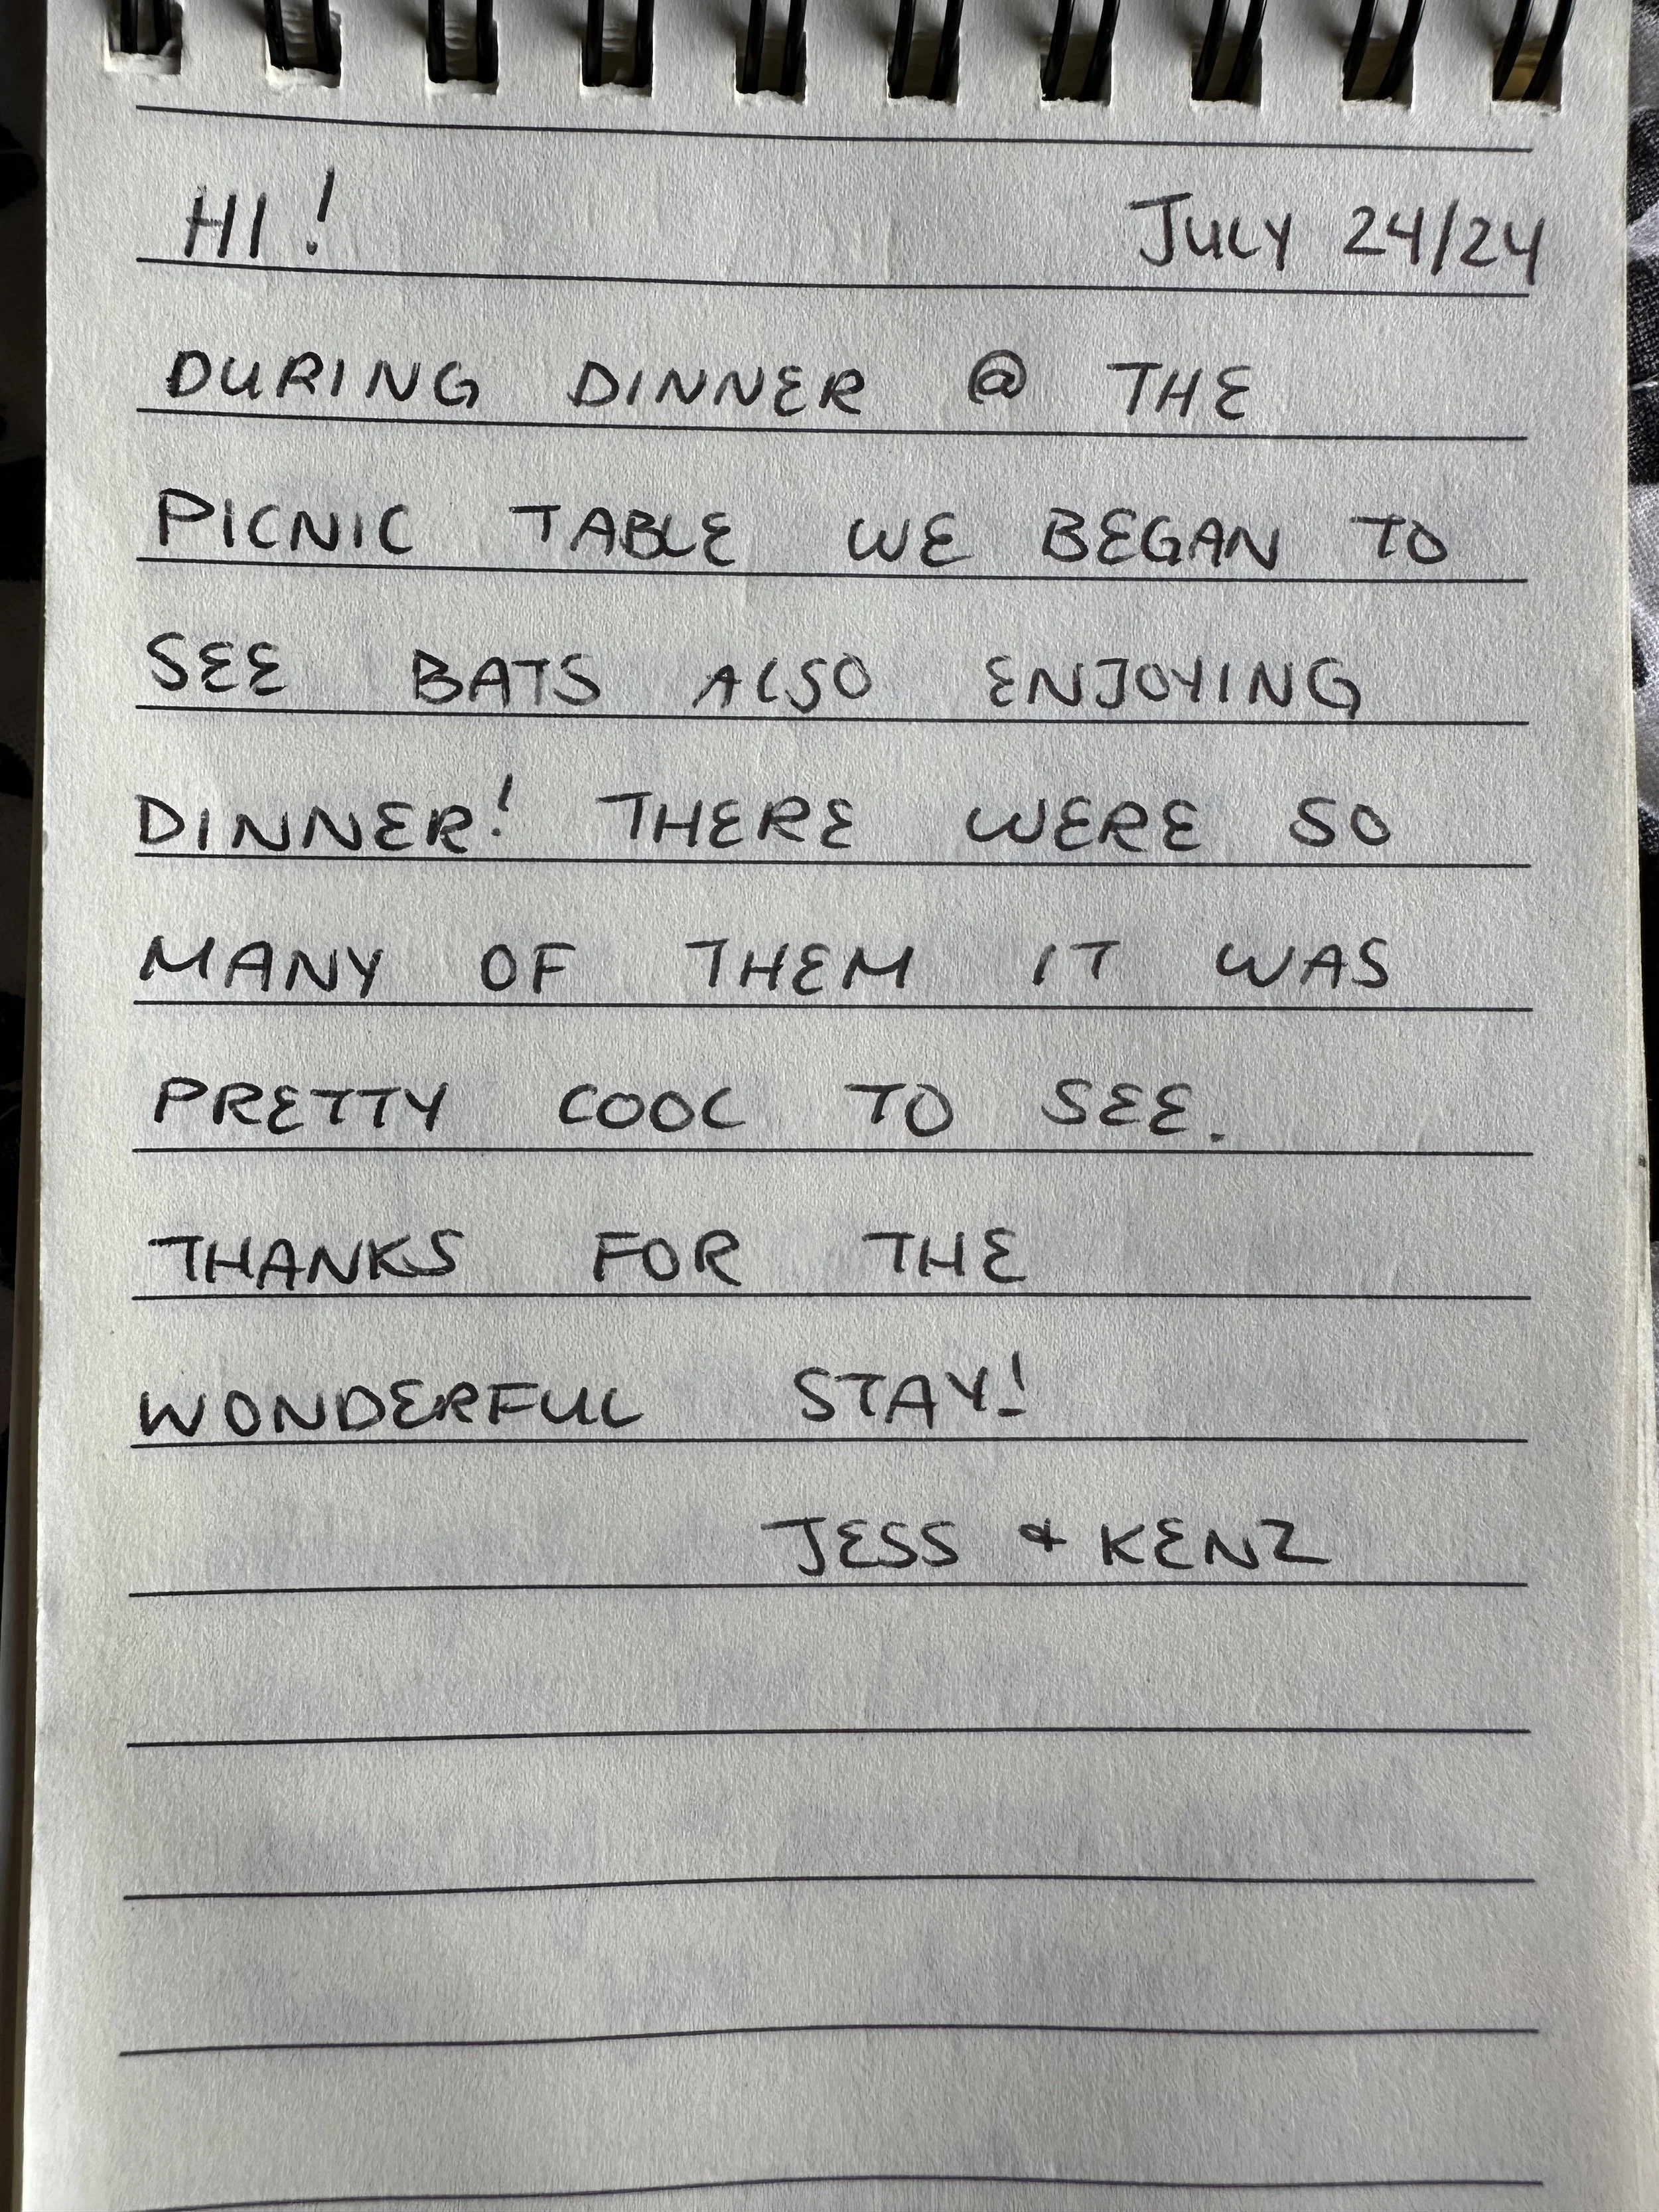 HI! JULY 24/24
DURING DINNER @ THE
PICNIC TABLE WE BEGAN TO
SEE BATS ALSO ENJOYING
DINNER! THERE WERE SO
MANY OF THEM IT WAS
PRETTY COOL TO SEE.
THANKS FOR THE
WONDERFUL STAY!
JESS & KENZ